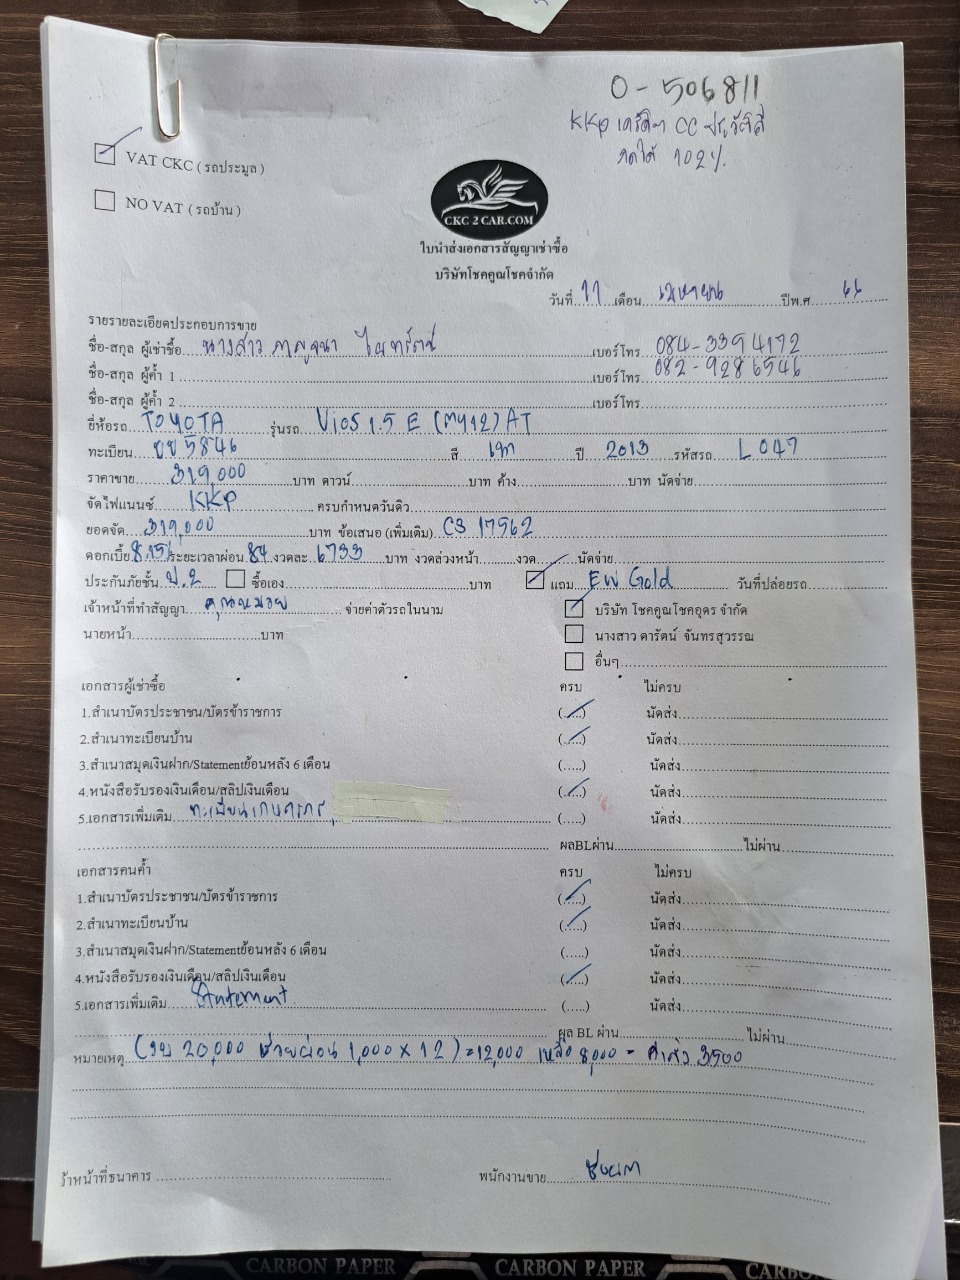 0-506811
KKP เครดิต CC ประวัติดี
กดได้ 102%
VAT CKC ( รถประมูล )
NO VAT ( รถบ้าน )
CKC 2 CAR.COM
ใบนำส่งเอกสารสัญญาเช่าซื้อ
บริษัทโชคคูณโชคจำกัด
วันที่ 11 เดือน เมษายน ปีพ.ศ 66
รายรายละเอียดประกอบการขาย
ชื่อ-สกุล ผู้เช่าซื้อ นางสาว กาญจนา เบอร์โทร 084-3394172
ชื่อ-สกุล ผู้ค้ำ 1 เบอร์โทร 082-9286546
ชื่อ-สกุล ผู้ค้ำ 2 เบอร์โทร
ยี่ห้อรถ TOYOTA รุ่นรถ Vios 1.5 E (MY12) AT
ทะเบียน ขข 5846 สี เทา ปี 2013 รหัสรถ L047
ราคาขาย 319,000 บาท ดาวน์ บาท ค้าง บาท นัดจ่าย
จัดไฟแนนซ์ KKP ครบกำหนดวันดิว
ยอดจัด 319,000 บาท ข้อเสนอ (เพิ่มเติม) CS 17562
ดอกเบี้ย 8.15% ระยะเวลาผ่อน 84 งวดละ 6733 บาท งวดล่วงหน้า งวด นัดจ่าย
ประกันภัยชั้น ป.2 ซื้อเอง บาท แถม EW Gold วันที่ปล่อยรถ
เจ้าหน้าที่ทำสัญญา คุณหมวย จ่ายค่าตัวรถในนาม บริษัท โชคคูณโชคอุดร จำกัด
นายหน้า บาท นางสาว ดารัตน์ จันทรสุวรรณ
อื่นๆ
เอกสารผู้เช่าซื้อ ครบ ไม่ครบ
1.สำเนาบัตรประชาชน/บัตรข้าราชการ (.....) นัดส่ง
2.สำเนาทะเบียนบ้าน (.....) นัดส่ง
3.สำเนาสมุดเงินฝาก/Statementย้อนหลัง 6 เดือน (.....) นัดส่ง
4.หนังสือรับรองเงินเดือน/สลิปเงินเดือน (.....) นัดส่ง
5.เอกสารเพิ่มเติม ทะเบียนเกษตรกร (.....) นัดส่ง
ผลBLผ่าน ไม่ผ่าน
เอกสารคนค้ำ ครบ ไม่ครบ
1.สำเนาบัตรประชาชน/บัตรข้าราชการ (.....) นัดส่ง
2.สำเนาทะเบียนบ้าน (.....) นัดส่ง
3.สำเนาสมุดเงินฝาก/Statementย้อนหลัง 6 เดือน (.....) นัดส่ง
4.หนังสือรับรองเงินเดือน/สลิปเงินเดือน (.....) นัดส่ง
5.เอกสารเพิ่มเติม Statement (.....) นัดส่ง
ผล BL ผ่าน ไม่ผ่าน
หมายเหตุ (งบ 20,000 ช่วยผ่อน 1,000 x 12) = 12,000 เหลือ 8,000 - 3500
เจ้าหน้าที่ธนาคาร พนักงานขาย
CARBON PAPER CARBON PAPER CARBO